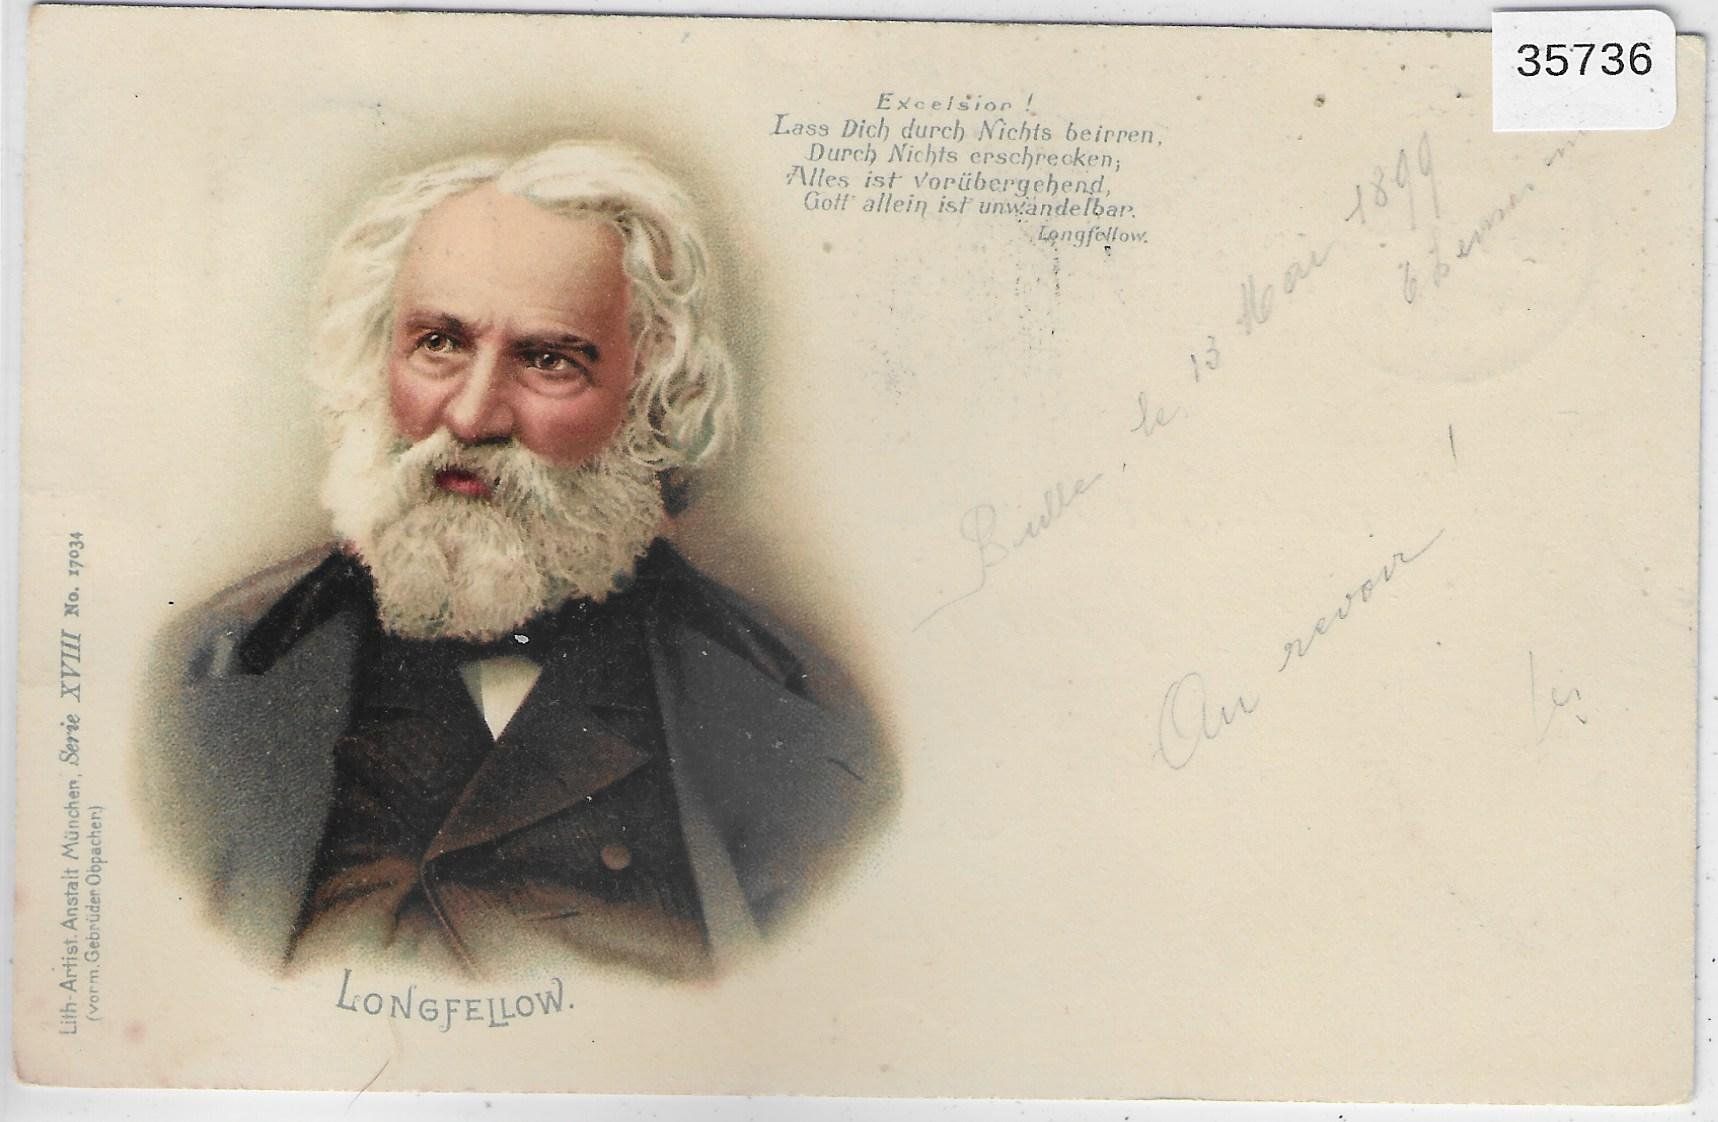 35736
Excelsior!
Lass Dich durch Nichts beirren,
Durch Nichts erschrecken;
Alles ist vorübergehend,
Gott allein ist unwandelbar.
Longfellow.
Bulle, le 13 Mai 1899
Au revoir !
LONGFELLOW.
Lith-Artist. Anstalt München, Serie XVIII No. 17034
(vorm. Gebrüder Obpacher)